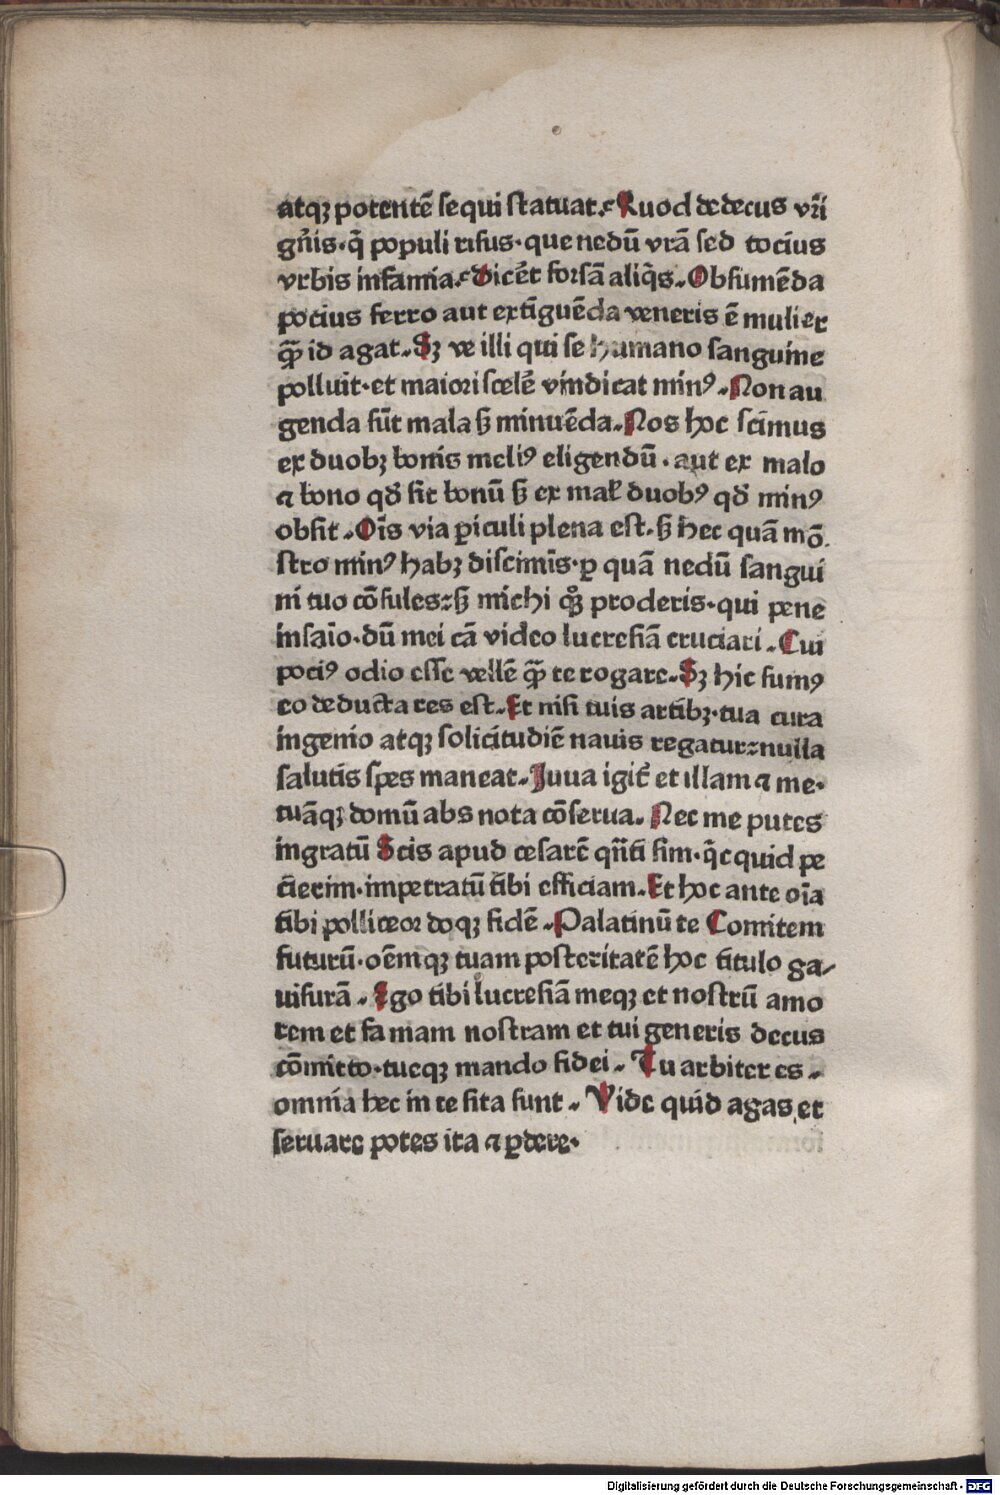 atqꝫ potentē sequi statuat. Quod dedecus vr̄i
gn̄is. q̄ populi risus. que nedū vrā sed tocius
vrbis infamia. Dicēt forsā aliq̄s. Obsumēda
pocius ferro aut extīguēda veneris ē mulier
qꝫ̄ id agat. Sꝫ ve illi qui se humano sanguine
polluit. et maiori scelē vindicat minꝰ. Non au
genda sūt mala sꝫ minuēda. Nos hoc scimus
ex duobꝫ bonis meliꝰ eligendū. aut ex malo
⁊ bono qd̄ sit bonū sꝫ ex mal̄ duobꝰ qd̄ minꝰ
obsit. Oīs via ꝑiculi plena est. sꝫ hec quā mō
stro minꝰ habꝫ discimīs. ꝑ quā nedū sangui
ni tuo cōsules: sꝫ michi qꝫ proderis. qui pene
insaīo. dū mei cā video lucresiā cruciari. Cui
pociꝰ odio esse vellē qꝫ̄ te rogare. Sꝫ hic sumꝰ
eo deducta res est. Et nisi tuis artibꝫ. tua cura
ingenio atqꝫ solicitudiē nauis regatur: nulla
salutis spes maneat. Juua igit̄ et illam ⁊ me.
tuāqꝫ domū abs nota cōserua. Nec me putes
ingratū Scis apud cesarē qn̄ti sim. q̄cquid pe
tierim. impetratū tibi efficiam. Et hoc ante oīa
tibi polliceor doqꝫ fidē. Palatinū te Comitem
futurū. oēmqꝫ tuam posteritatē hoc titulo ga⸗
uisurā. Ego tibi lucresiā meqꝫ et nostrū amo
rem et famam nostram et tui generis decus
cōmitto. tueqꝫ mando fidei. Tu arbiter es.
omnia hec in te sita sunt. Vide quid agas et
seruare potes ita ⁊ ꝑdere.
Digitalisierung gefördert durch die Deutsche Forschungsgemeinschaft - DFG